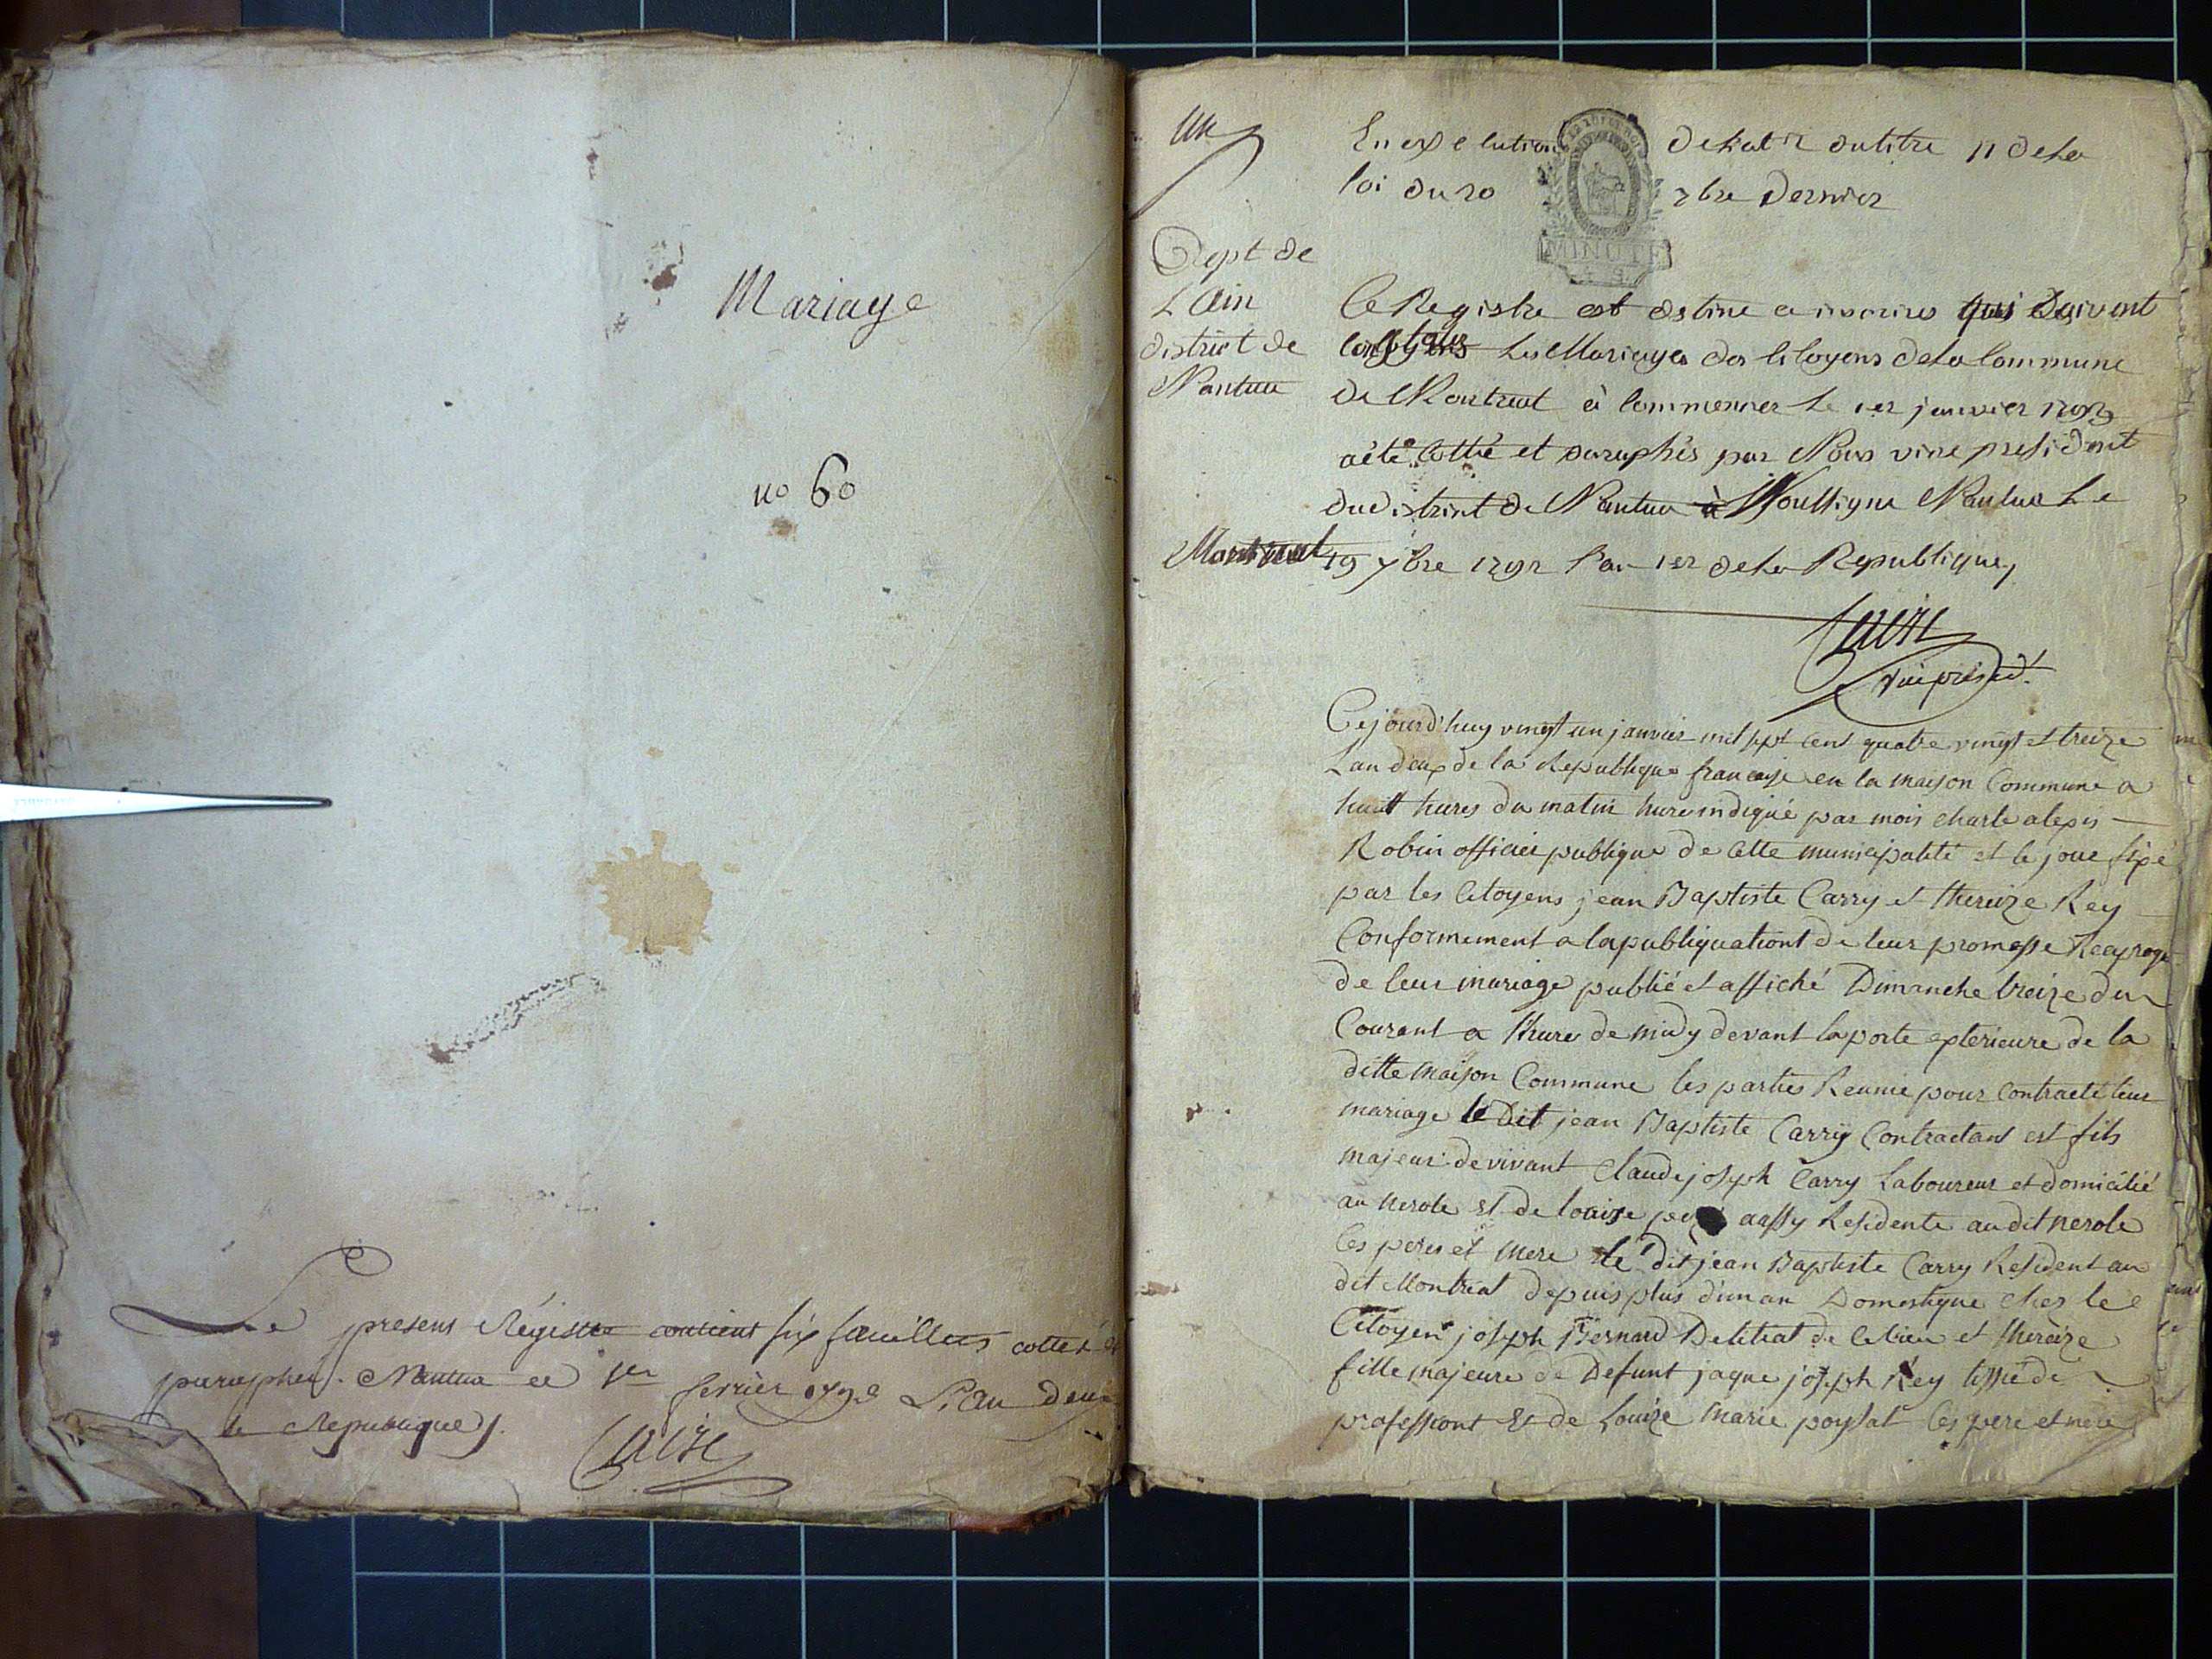 Mariage
no 60
Le present Régistre contient six feuilles cottés et
paraphés. Nantua ce 1er fevrier 1793 L'an deux
la Republique
un
En execution de l'art 2 du titre 11 de la
loi du 20 7bre Dernier
MINUTE
Dept de
L Ain
district de
Nantua
Ce Registre est destine a inscrire qui doivent
les Mariages des Citoyens de la Commune
de Montreal à Commencer Le 1er janvier 1793
a été Cotté et paraphés par Nous vice president
du district de Nantua à Nantua Le
Montreal
19 Xbre 1792 l'an 1er de la Republique,
vice présid.t
Cejourd'huy vingt un janvier mil sept cent quatre vingt et treize
L'an deux de la Republique francaise en la maison Commune a
huitt hures du matin hure indiqué par mois charle alexis
Robin officier publique de Cette municipalité et le jour fixé
par les Citoyens jean Baptiste Carry et thereize Rey
Conformement a la publiquationt de leur promesse Reciproque
de leur mariage publié et affiché Dimanche treize du
Courant a l'hure de midy devant la porte exterieure de la
ditte maison Commune les parties Reunie pour Contracté leur
mariage le Dit jean Baptiste Carry Contractant est fils
majeur de vivant Claude joseph Carry Laboureur et domicilié
au nerole et de louise Residente au dit nerole
Ces peres et mere le dit jean Baptiste Carry Resident au
dit Montreal depuis plus d'un an Domestique Ches le
Citoyen joseph Bernard Delilliat de Ce lieu et thereize
fille majeure de Defunt jaque joseph Rey tissié de
professiont Et de Louize Marie poysat Ces pere et mere